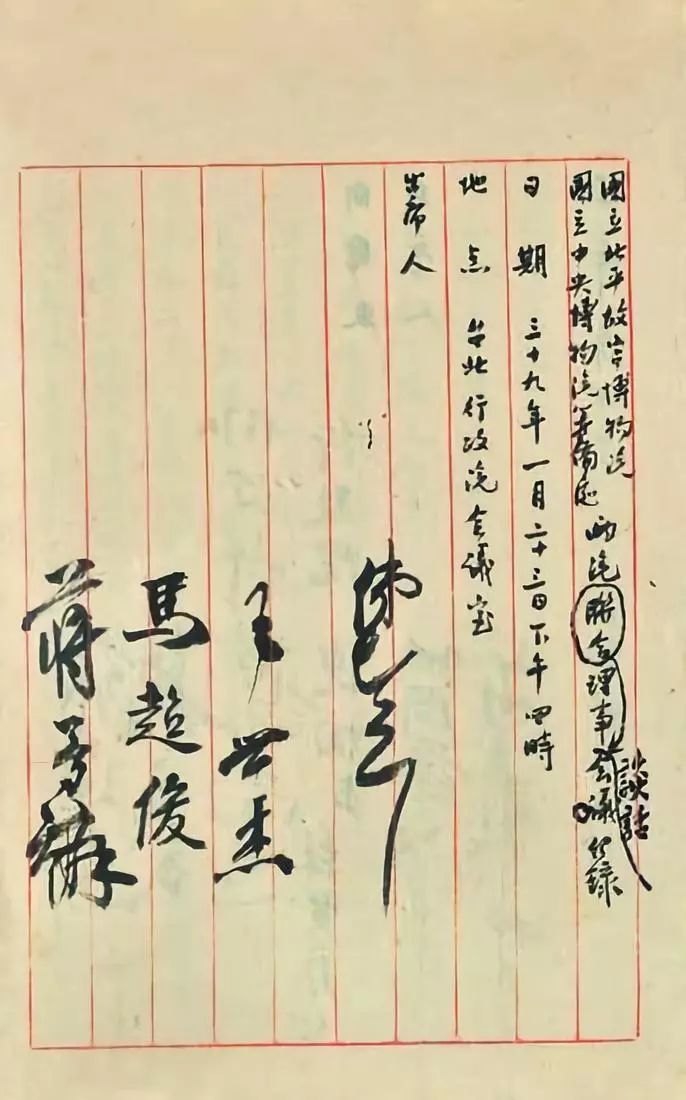 國立北平故宮博物院
國立中央博物院籌備處
兩院聯合理事会議紀錄
談話
日期 三十九年一月二十三日下午四時
地点 台北行政院会議室
出席人
傅斯年
王世杰
馬超俊
蔣夢麟